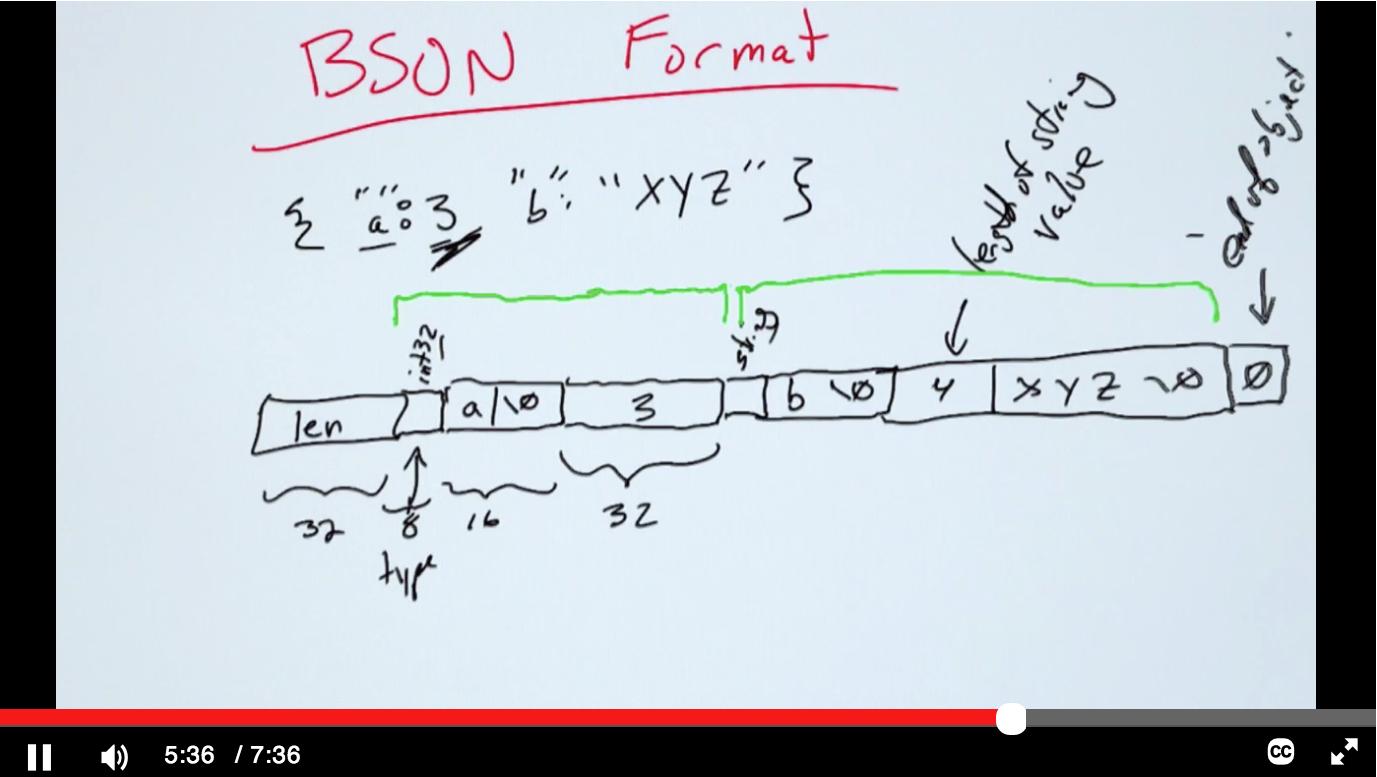 BSON Format
{ "a": 3 "b": "XYZ" }
length of string
value
end of object.
int32
string
len a \0 3 b \0 4 X Y Z \0 0
32 8 16 32
type
5:36 / 7:36
CC